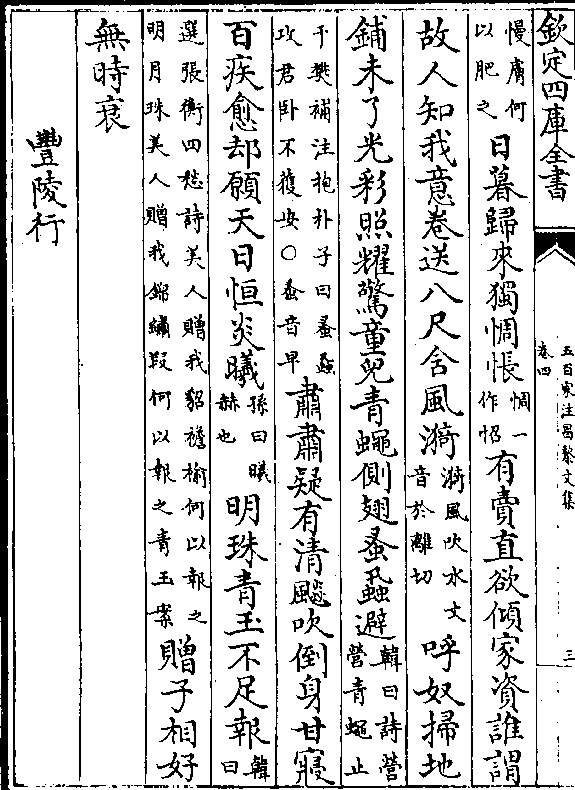 欽定四庫全書
五百家注昌黎文集
卷四
三
慢膚何以肥之日暮歸來獨惆悵惆一作怊有賣直欲傾家資誰謂
故人知我意卷送八尺含風漪漪風吹水文音於離切呼奴掃地
鋪未了光彩照耀驚童兒青蠅側翅蚤蝨避韓曰詩營營青蠅止
于樊補注抱朴子曰蚤蝨攻君卧不獲安○蚤音早肅肅疑有清飈吹倒身甘寢
百疾愈却願天日恒炎曦孫曰曦赫也明珠青玉不足報韓曰
選張衡四愁詩美人贈我貂襜榆何以報之明月珠美人贈我錦繡段何以報之青玉案贈子相好
無時衰
豐陵行